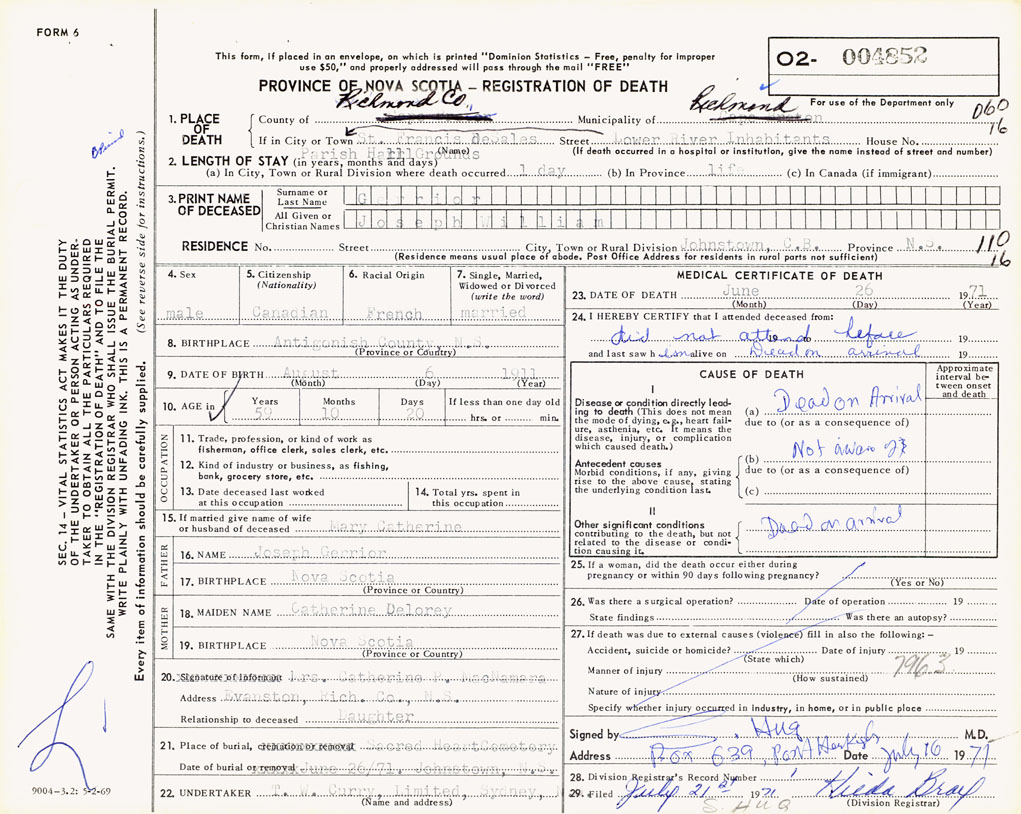 FORM 6
This form, if placed in an envelope, on which is printed "Dominion Statistics – Free, penalty for improper
use $50," and properly addressed will pass through the mail "FREE"
O2- 004852
PROVINCE OF NOVA SCOTIA – REGISTRATION OF DEATH
For use of the Department only
Richmond Co. Richmond 060
16
1. PLACE OF DEATH
County of Municipality of
If in City or Town St. Francis deSales Street Lower River Inhabitants House No.
Parish Hall Grounds (Name) (If death occurred in a hospital or institution, give the name instead of street and number)
2. LENGTH OF STAY (in years, months and days)
(a) In City, Town or Rural Division where death occurred 1 day (b) In Province life (c) In Canada (if immigrant)
3. PRINT NAME OF DECEASED
Surname or Last Name Gerrior
All Given or Christian Names Joseph William
RESIDENCE No. Street City, Town or Rural Division Johnstown, C.B. Province N.S. 110
(Residence means usual place of abode. Post Office Address for residents in rural parts not sufficient) 16
4. Sex male
5. Citizenship (Nationality) Canadian
6. Racial Origin French
7. Single, Married, Widowed or Divorced (write the word) married
8. BIRTHPLACE Antigonish County, N.S.
(Province or Country)
9. DATE OF BIRTH August 6 1911
(Month) (Day) (Year)
10. AGE in Years 59 Months 10 Days 20 If less than one day old hrs. or min.
OCCUPATION
11. Trade, profession, or kind of work as
fisherman, office clerk, sales clerk, etc.
12. Kind of industry or business, as fishing,
bank, grocery store, etc.
13. Date deceased last worked
at this occupation
14. Total yrs. spent in
this occupation
15. If married give name of wife
or husband of deceased Mary Catherine
FATHER
16. NAME Joseph Gerrior
17. BIRTHPLACE Nova Scotia
(Province or Country)
MOTHER
18. MAIDEN NAME Catherine Delorey
19. BIRTHPLACE Nova Scotia
(Province or Country)
20. Signature of informant Mrs. Catherine P. MacNamara
Address Evanston, Rich. Co., N.S.
Relationship to deceased Daughter
21. Place of burial, cremation or removal Sacred Heart Cemetery
Date of burial or removal June 26/71. Johnstown, N.S.
22. UNDERTAKER T. W. Curry, Limited, Sydney,
(Name and address)
MEDICAL CERTIFICATE OF DEATH
23. DATE OF DEATH June 26 1971
(Month) (Day) (Year)
24. I HEREBY CERTIFY that I attended deceased from:
did not attend before 19
and last saw him alive on Dead on arrival 19
CAUSE OF DEATH
Approximate interval between onset and death
I
Disease or condition directly leading to death (This does not mean the mode of dying, e.g., heart failure, asthenia, etc. It means the disease, injury, or complication which caused death.)
(a) Dead on Arrival
due to (or as a consequence of)
Antecedent causes
Morbid conditions, if any, giving rise to the above cause, stating the underlying condition last.
(b) Not aware of
due to (or as a consequence of)
(c)
II
Other significant conditions
contributing to the death, but not related to the disease or condition causing it.
Dead on arrival
25. If a woman, did the death occur either during
pregnancy or within 90 days following pregnancy?
(Yes or No)
26. Was there a surgical operation? Date of operation 19
State findings Was there an autopsy?
27. If death was due to external causes (violence) fill in also the following: –
Accident, suicide or homicide? Date of injury 19
(State which) 796.3
Manner of injury
(How sustained)
Nature of injury
Specify whether injury occurred in industry, in home, or in public place
Signed by Huq M.D.
Address Box 639, Port Hawkesbury Date July 16 1971
28. Division Registrar's Record Number 1
29. Filed July 21st 1971
S. HUQ
(Division Registrar)
SEC. 14 – VITAL STATISTICS ACT MAKES IT THE DUTY
OF THE UNDERTAKER OR PERSON ACTING AS UNDER-
TAKER TO OBTAIN ALL THE PARTICULARS REQUIRED
IN THE "REGISTRATION OF DEATH" AND TO FILE THE
SAME WITH THE DIVISION REGISTRAR WHO SHALL ISSUE THE BURIAL PERMIT.
WRITE PLAINLY WITH UNFADING INK. THIS IS A PERMANENT RECORD.
Every item of information should be carefully supplied. (See reverse side for instructions.)
9004-3.2: 5-2-69